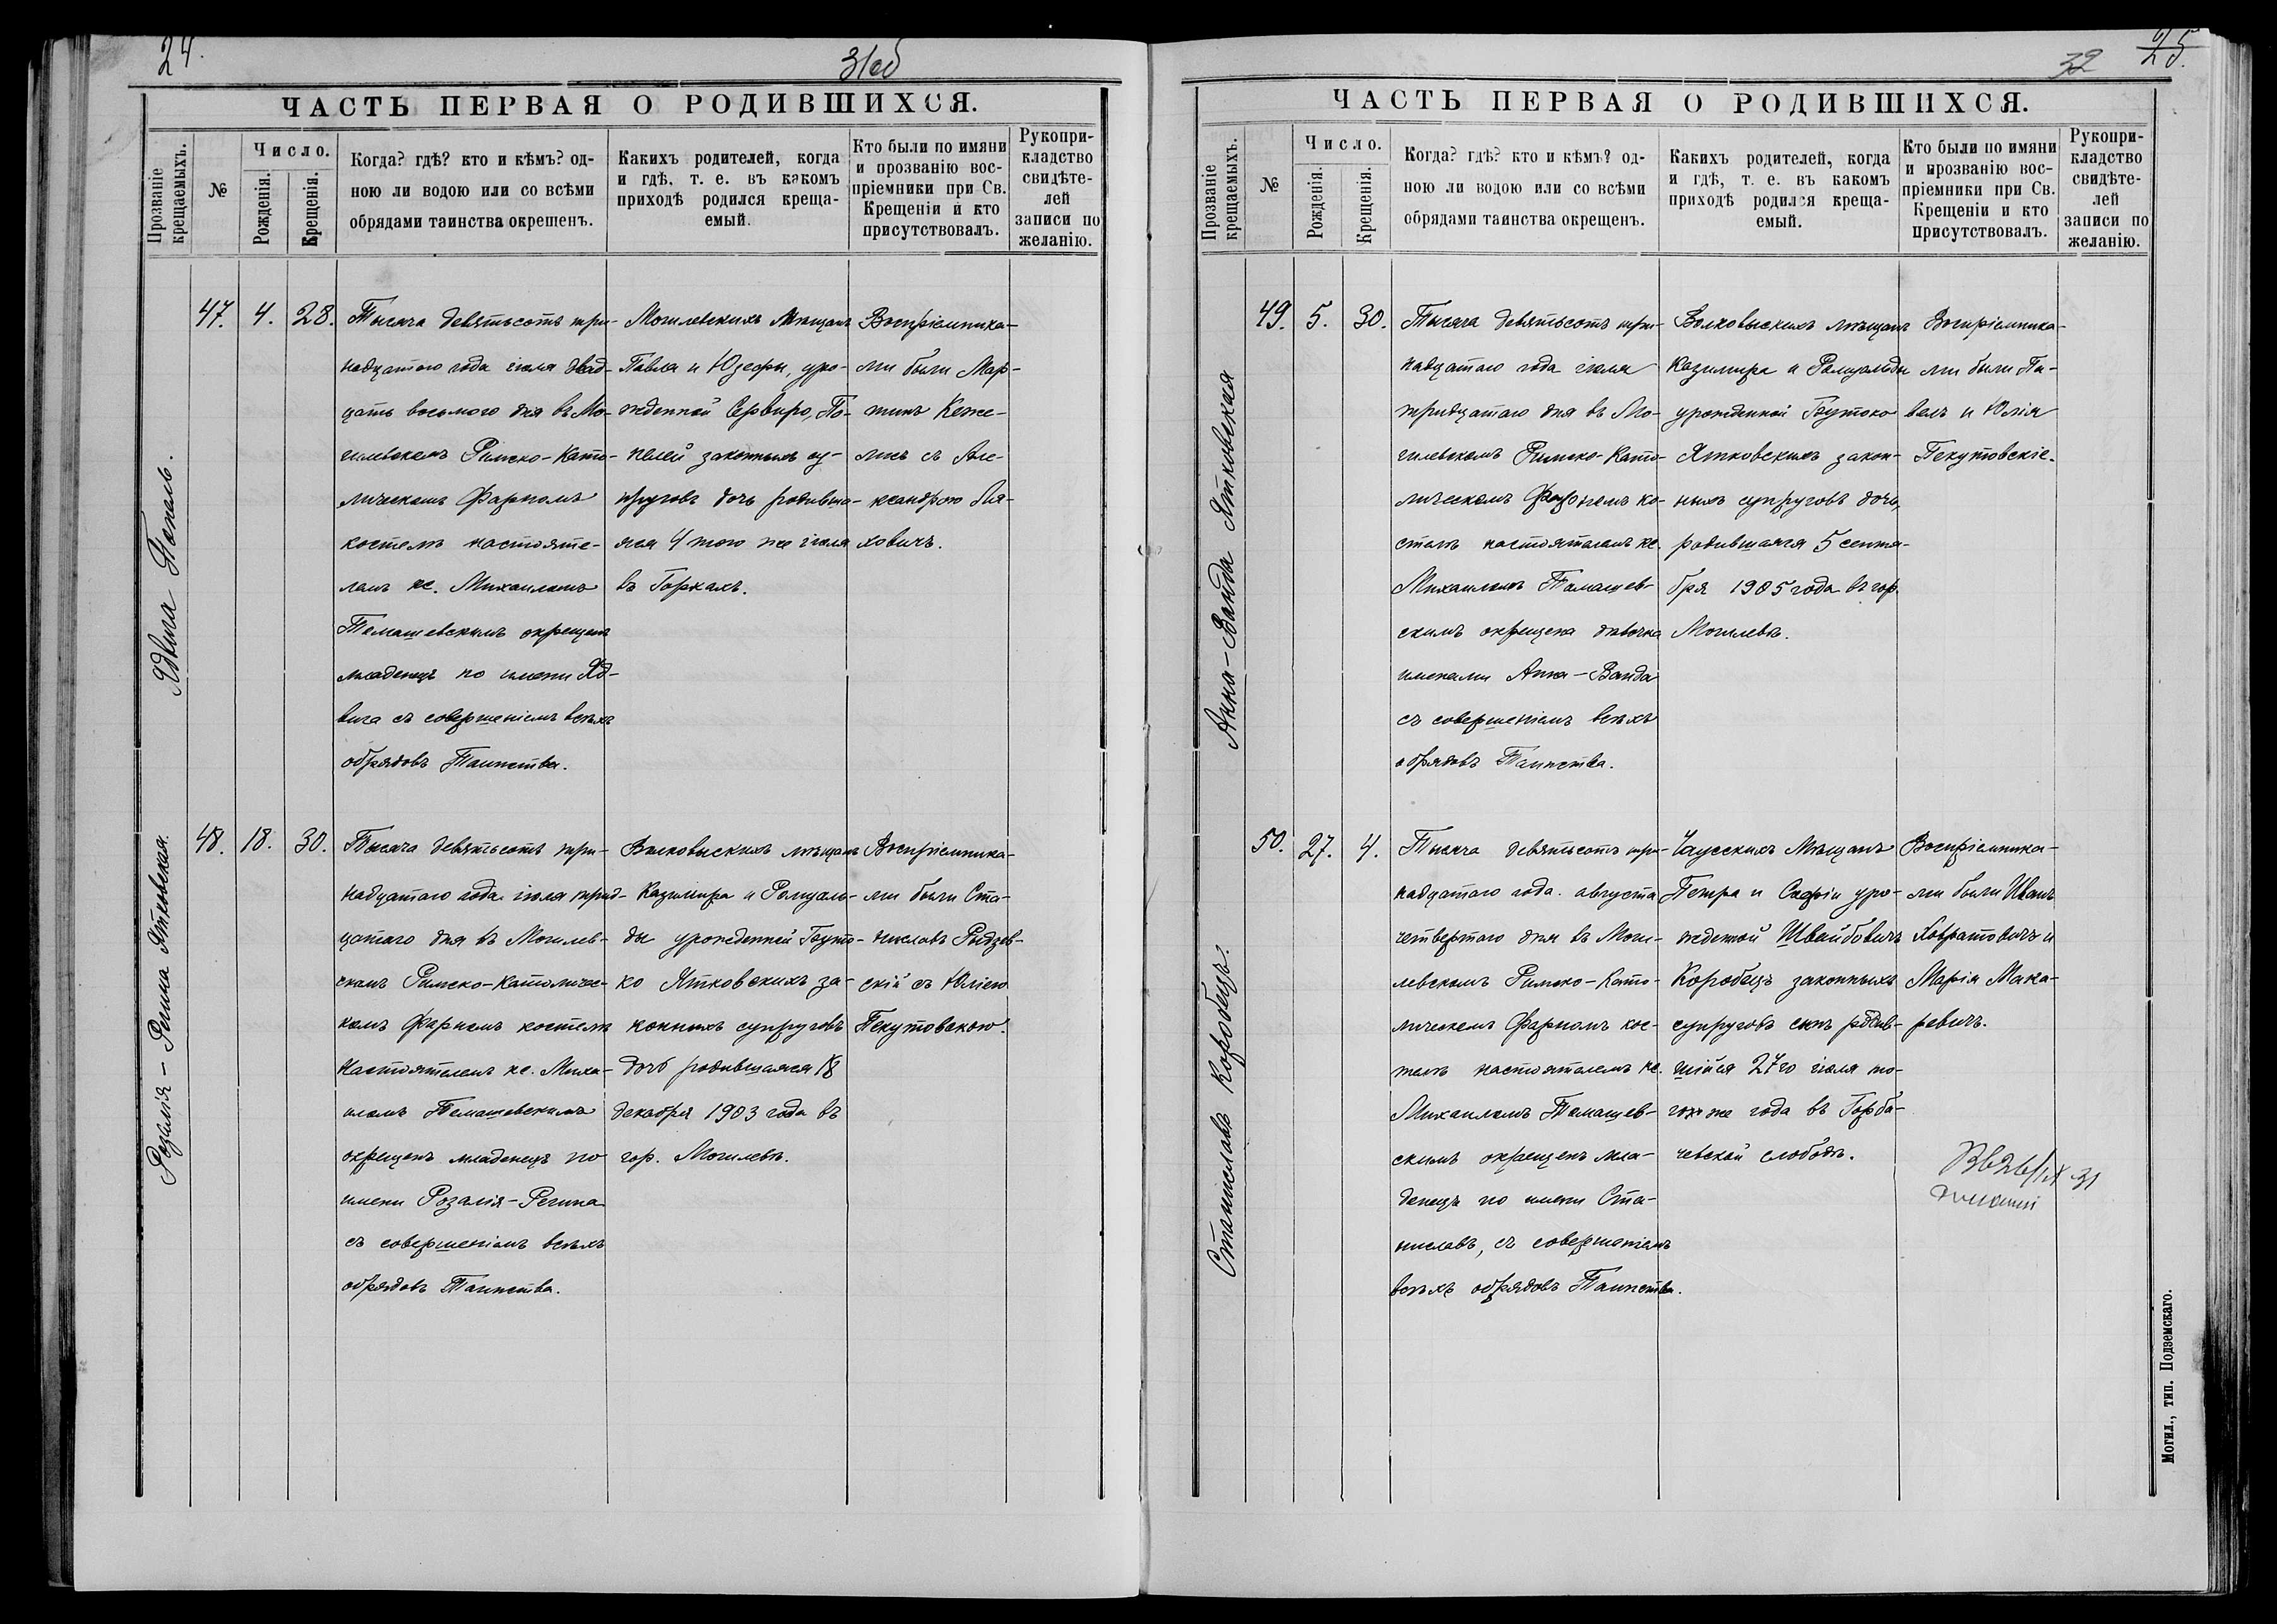 24.
31об
ЧАСТЬ ПЕРВАЯ О РОДИВШИХСЯ.
Прозваніе крещаемыхъ.
№
Число.
Рожденія.
Крещенія.
Когда? гдѣ? кто и кѣмъ? од-
ною ли водою или со всѣми
обрядами таинства окрещенъ.
Какихъ родителей, когда
и гдѣ, т. е. въ какомъ
приходѣ родился креща-
емый.
Кто были по имяни
и прозванію вос-
пріемники при Св.
Крещеніи и кто
присутствовалъ.
Рукопри-
кладство
свидѣте-
лей
записи по
желанію.
Ядвига Попель.
47.
4.
28.
Тысяча девятьсотъ три-
надцатаго года іюля двад-
цать восьмого дня въ Мо-
гилевскомъ Римско-Като-
лическомъ Фарномъ
костелѣ настояте-
лемъ кс. Михаиломъ
Томашевскимъ окрещенъ
младенецъ по имени Яд-
вига съ совершеніемъ всѣхъ
обрядовъ Таинства.
Могилевскихъ Мѣщанъ
Павла и Юзефы, уро-
жденной Сервиро, По-
пелей законныхъ су-
пруговъ дочь родивша-
яся 4 того же іюля
въ Горкахъ.
Воспріемника-
ми были Мар-
тинъ Кеже-
лисъ съ Але-
ксандрою
ховичъ.
Розалія - Регина Ятковская.
48.
18.
30.
Тысяча девятьсотъ три-
надцатаго года іюля трид-
цатаго дня въ Могилев-
скомъ Римско-Католичес-
комъ Фарномъ костелѣ
Настоятелемъ кс. Миха-
иломъ Томашевскимъ
окрещенъ младенецъ по
имени Розалія-Регина
съ совершеніемъ всѣхъ
обрядовъ Таинства.
Волковыскихъ мѣщанъ
Казиміра и Ромуаль-
ды урожденной Гоуто-
ко Ятковскихъ за-
конныхъ супруговъ
дочь родившаяся 18
декабря 1903 года въ
гор. Могилевѣ.
Воспріемника-
ми были Ста-
ниславъ Рыдзев-
скій съ Юліею
Пекутовскою.
25.
32
ЧАСТЬ ПЕРВАЯ О РОДИВШИХСЯ.
Прозваніе крещаемыхъ.
№
Число.
Рожденія.
Крещенія.
Когда? гдѣ? кто и кѣмъ? од-
ною ли водою или со всѣми
обрядами таинства окрещенъ.
Какихъ родителей, когда
и гдѣ, т. е. въ какомъ
приходѣ родился креща-
емый.
Кто были по имяни
и прозванію вос-
пріемники при Св.
Крещеніи и кто
присутствовалъ.
Рукопри-
кладство
свидѣте-
лей
записи по
желанію.
Анна-Ванда Ятковская
49.
5.
30.
Тысяча девятьсотъ три-
надцатаго года іюля
тридцатаго дня въ Мо-
гилевскомъ Римско-Като-
лическомъ Фарномъ ко-
стелѣ настоятелемъ кс.
Михаиломъ Томашев-
скимъ окрещена дѣвочка
именами Анна-Ванда
съ совершеніемъ всѣхъ
обрядовъ Таинства.
Волковыскихъ мѣщанъ
Казиміра и Ромуальды
урожденной Гоутоко
Ятковскихъ закон-
ныхъ супруговъ дочь,
родившаяся 5 сентя-
бря 1905 года въ гор.
Могилевѣ.
Воспріемника-
ми были Па-
велъ и Юлія
Пекутовскіе.
Станиславъ Коробецъ.
50.
27.
4.
Тысяча девятьсотъ три-
надцатаго года августа
четвертаго дня въ Моги-
левскомъ Римско-Като-
лическомъ Фарномъ кос-
телѣ настоятелемъ кс.
Михаиломъ Томашев-
скимъ окрещенъ мла-
денецъ по имени Ста-
ниславъ, съ совершеніемъ
всѣхъ обрядовъ Таинства.
Чаусскихъ Мѣщанъ
Петра и Софіи уро-
жденной Швойбовичъ
Коробецъ законныхъ
супруговъ сынъ родив-
шійся 27го іюля то-
го же года въ Горба-
чевской слободѣ.
Воспріемника-
ми были Иванъ
Ховратовичъ и
Марія Мака-
ревичъ.
Могил., тип. Подземскаго.